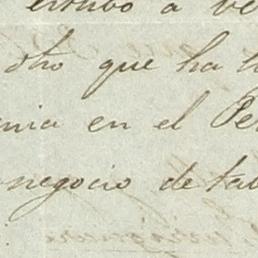 estubo a ve
dho que ha t
nia en el Per
negocio de tab